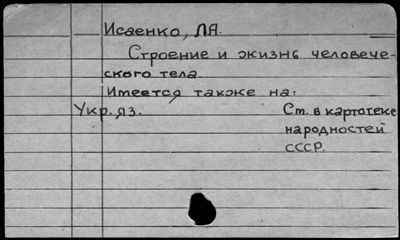 Исаенко, Л.А.
Строение и жизнь человече-
ского тела.
Имеется также на:
Укр. яз. Ст. в картотеке
народностей
СССР.